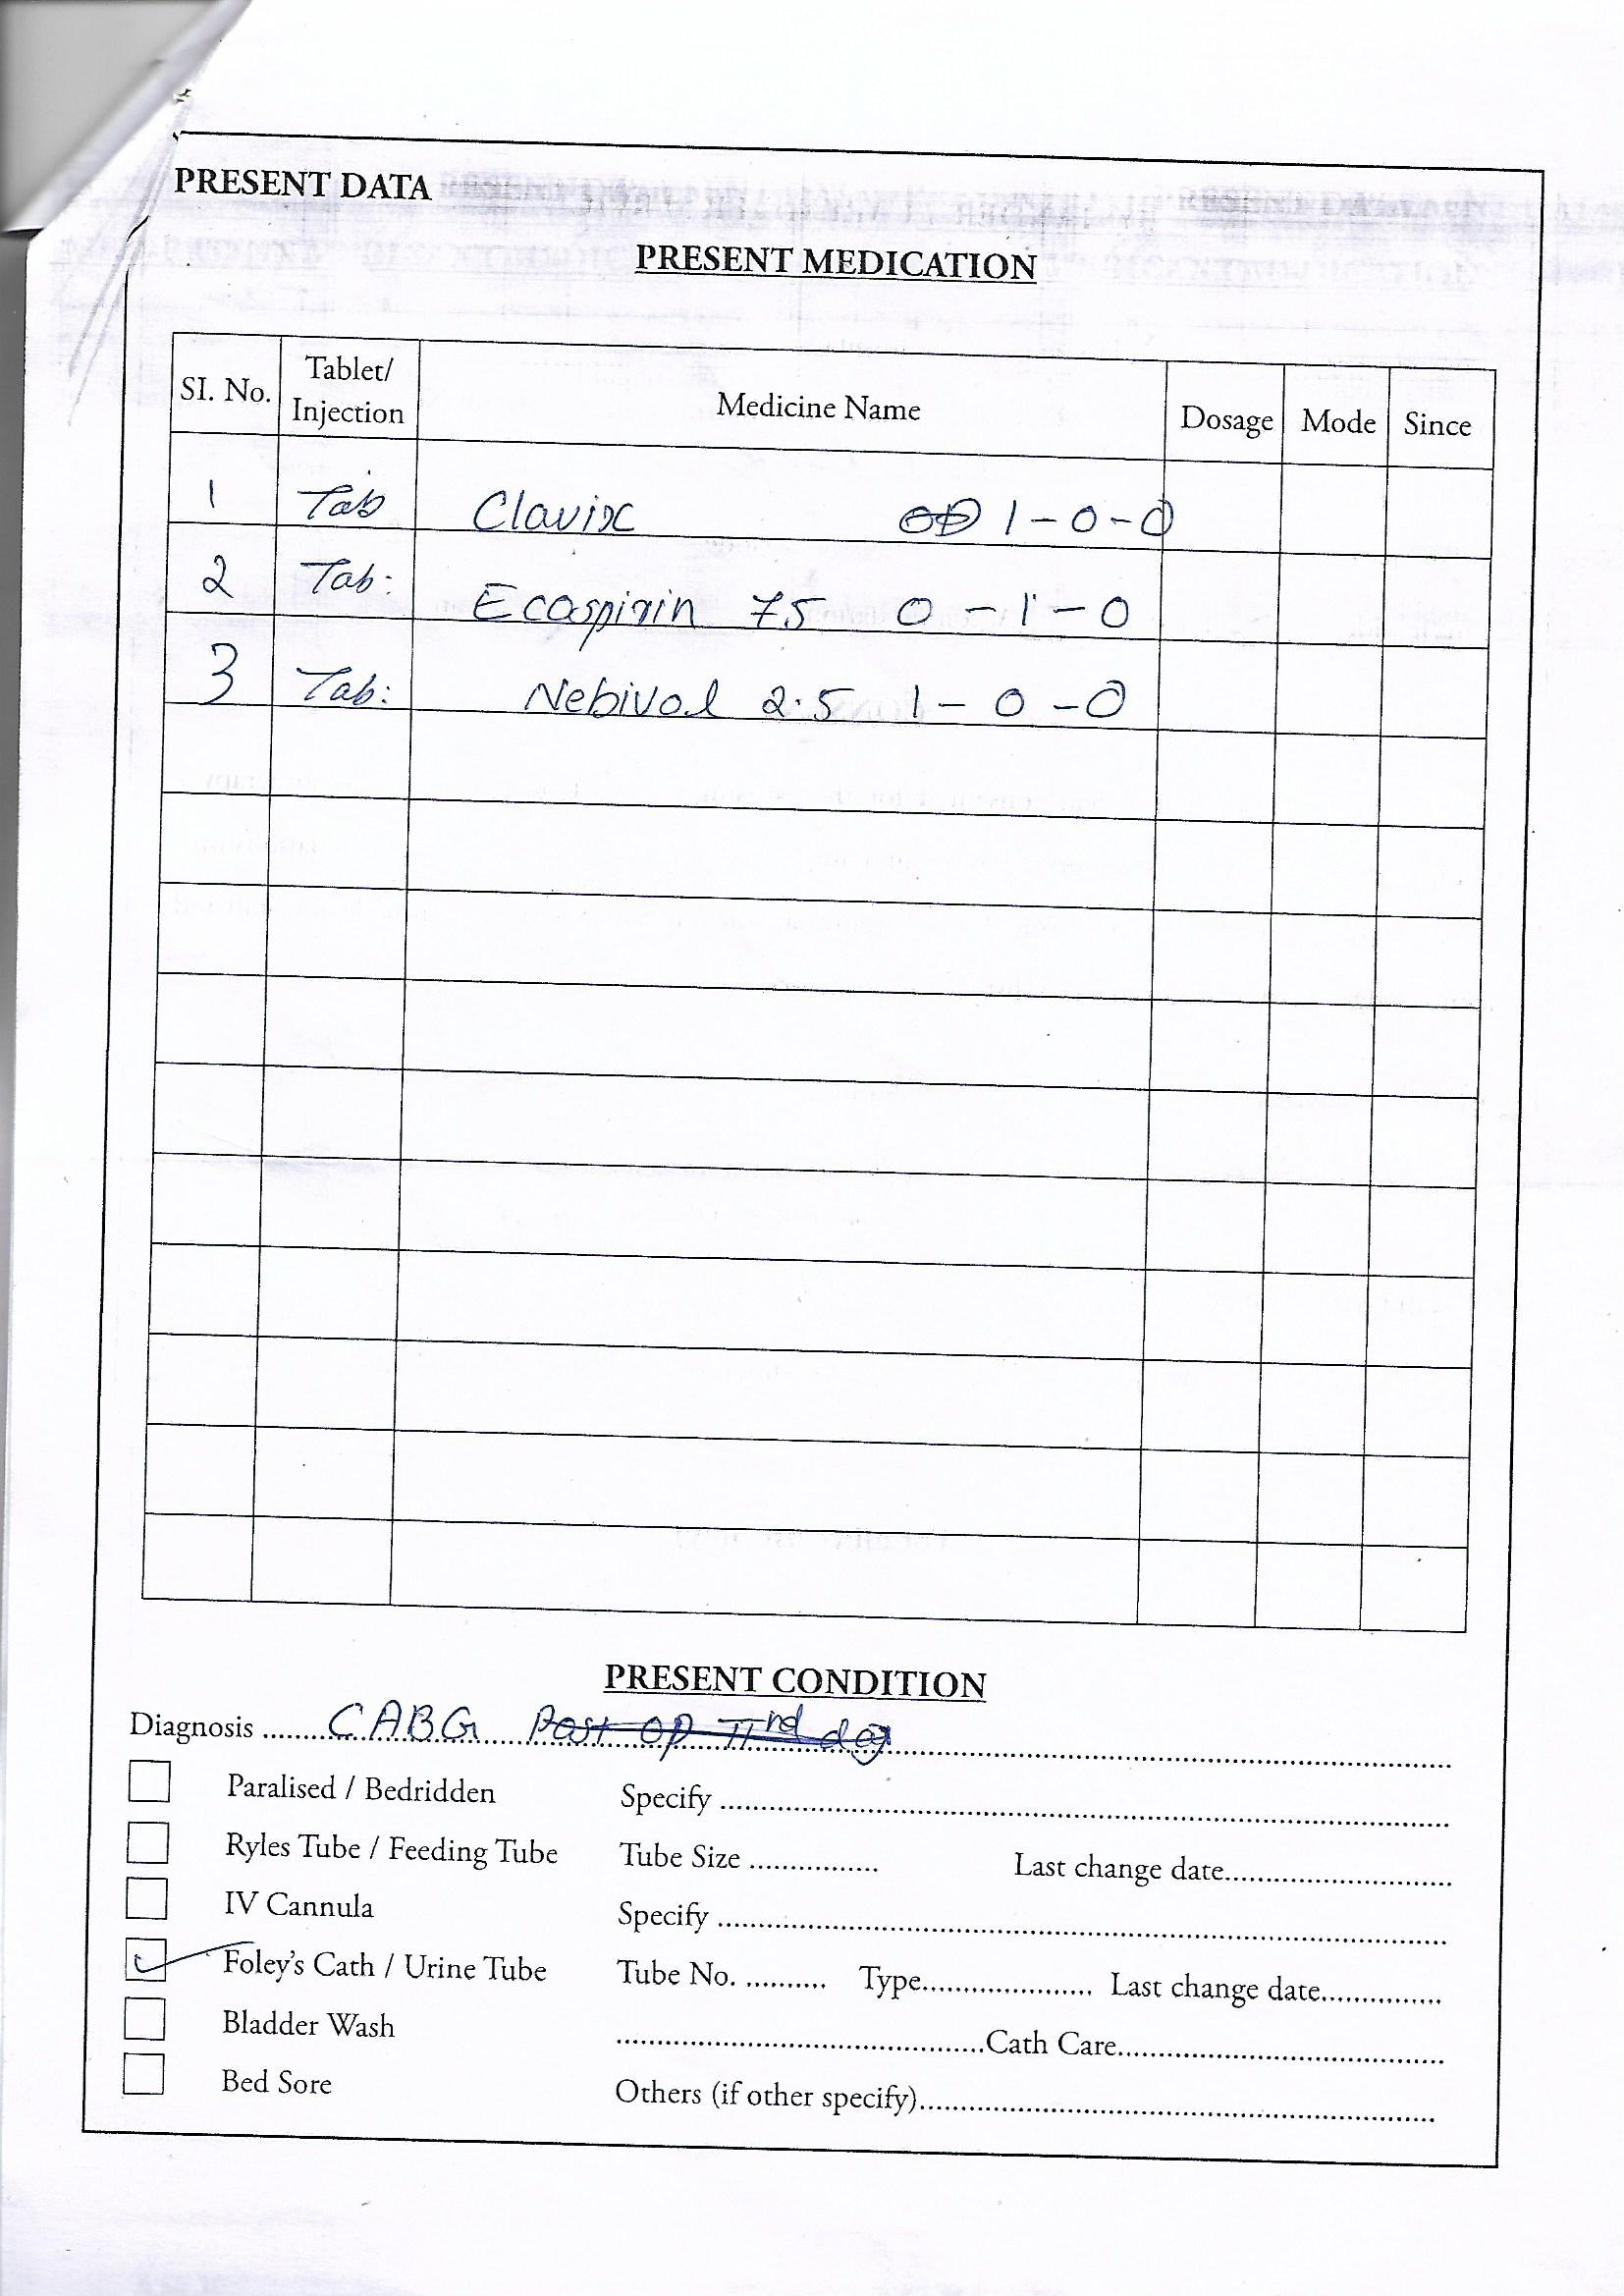 PRESENT DATA
PRESENT MEDICATION
SI. No. Tablet/ Injection Medicine Name Dosage Mode Since
1 Tab Clavix OD 1 - 0 - 0
2 Tab: Ecaspirin 75 0 - 1 - 0
3 Tab: Nebivol 2.5 1 - 0 - 0
PRESENT CONDITION
Diagnosis ....... CABG Post op IInd day
Paralised / Bedridden Specify
Ryles Tube / Feeding Tube Tube Size ............... Last change date
IV Cannula Specify
Foley's Cath / Urine Tube Tube No. .......... Type..................... Last change date
Bladder Wash ........................................Cath Care
Bed Sore Others (if other specify)